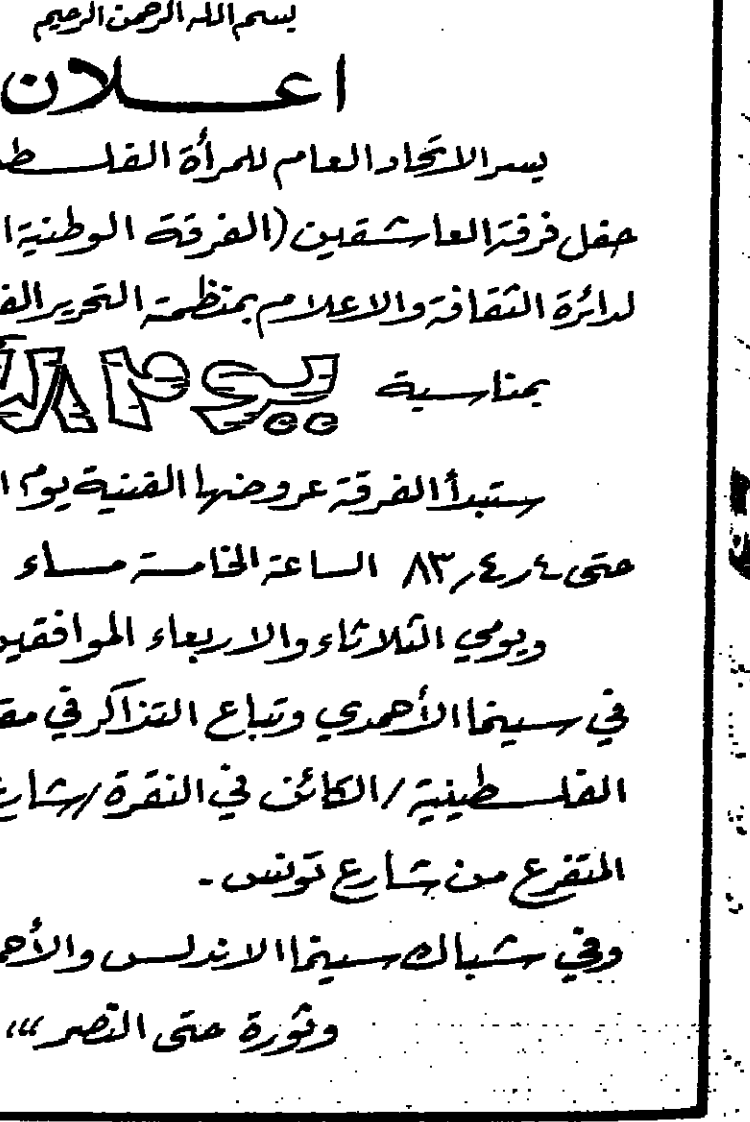 بسم الله الرحمن الرحيم
اعـــلان
يسر الاتحاد العام للمرأة الفلسط
حفل فرقة العاشقين (الفرقة الوطنية ا
لدائرة الثقافة والاعلام بمنظمة التحرير الف
بمناسبة يوم الأ
ستبدأ الفرقة عروضها الفنية يوم ا
حتى ٨٣/٤/ الساعة الخامسة مساء
ويومي الثلاثاء والاربعاء الموافقين
في سينما الأحمدي وتباع التذاكر في مق
الفلسطينية / الكائن في النقرة / شارع
المتفرع من شارع تونس .
وفي شباك سينما الاندلس والأحم
وثورة حتى النصر ،،،